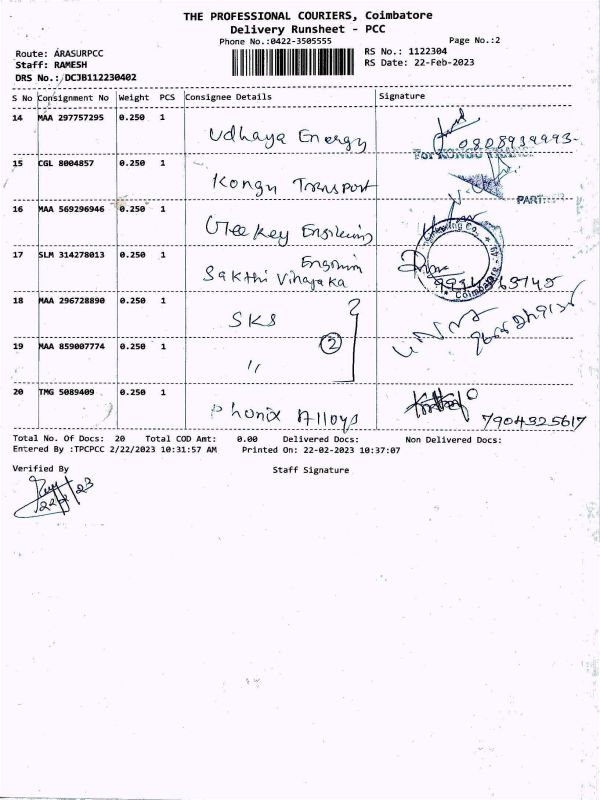 THE PROFESSIONAL COURIERS, Coimbatore
Delivery Runsheet - PCC
Phone No.:0422-3505555 Page No.:2
Route: ARASURPCC RS No.: 1122304
Staff: RAMESH RS Date: 22-Feb-2023
DRS No.: DCJB112230402
S No Consignment No Weight PCS Consignee Details Signature
14 MAA 297757295 0.250 1 Udhaya Energy
15 CGL 8004857 0.250 1 Kongu Transport
16 MAA 569296946 0.250 1 Gee Key
17 SLM 314278013 0.250 1 Sakthi Vinayaka
18 MAA 296728890 0.250 1 SKS
19 MAA 859007774 0.250 1 " 2
20 TMG 5089409 0.250 1 Phonix Alloys 7904325617
Total No. Of Docs: 20 Total COD Amt: 0.00 Delivered Docs: Non Delivered Docs:
Entered By :TPCPCC 2/22/2023 10:31:57 AM Printed On: 22-02-2023 10:37:07
Verified By Staff Signature